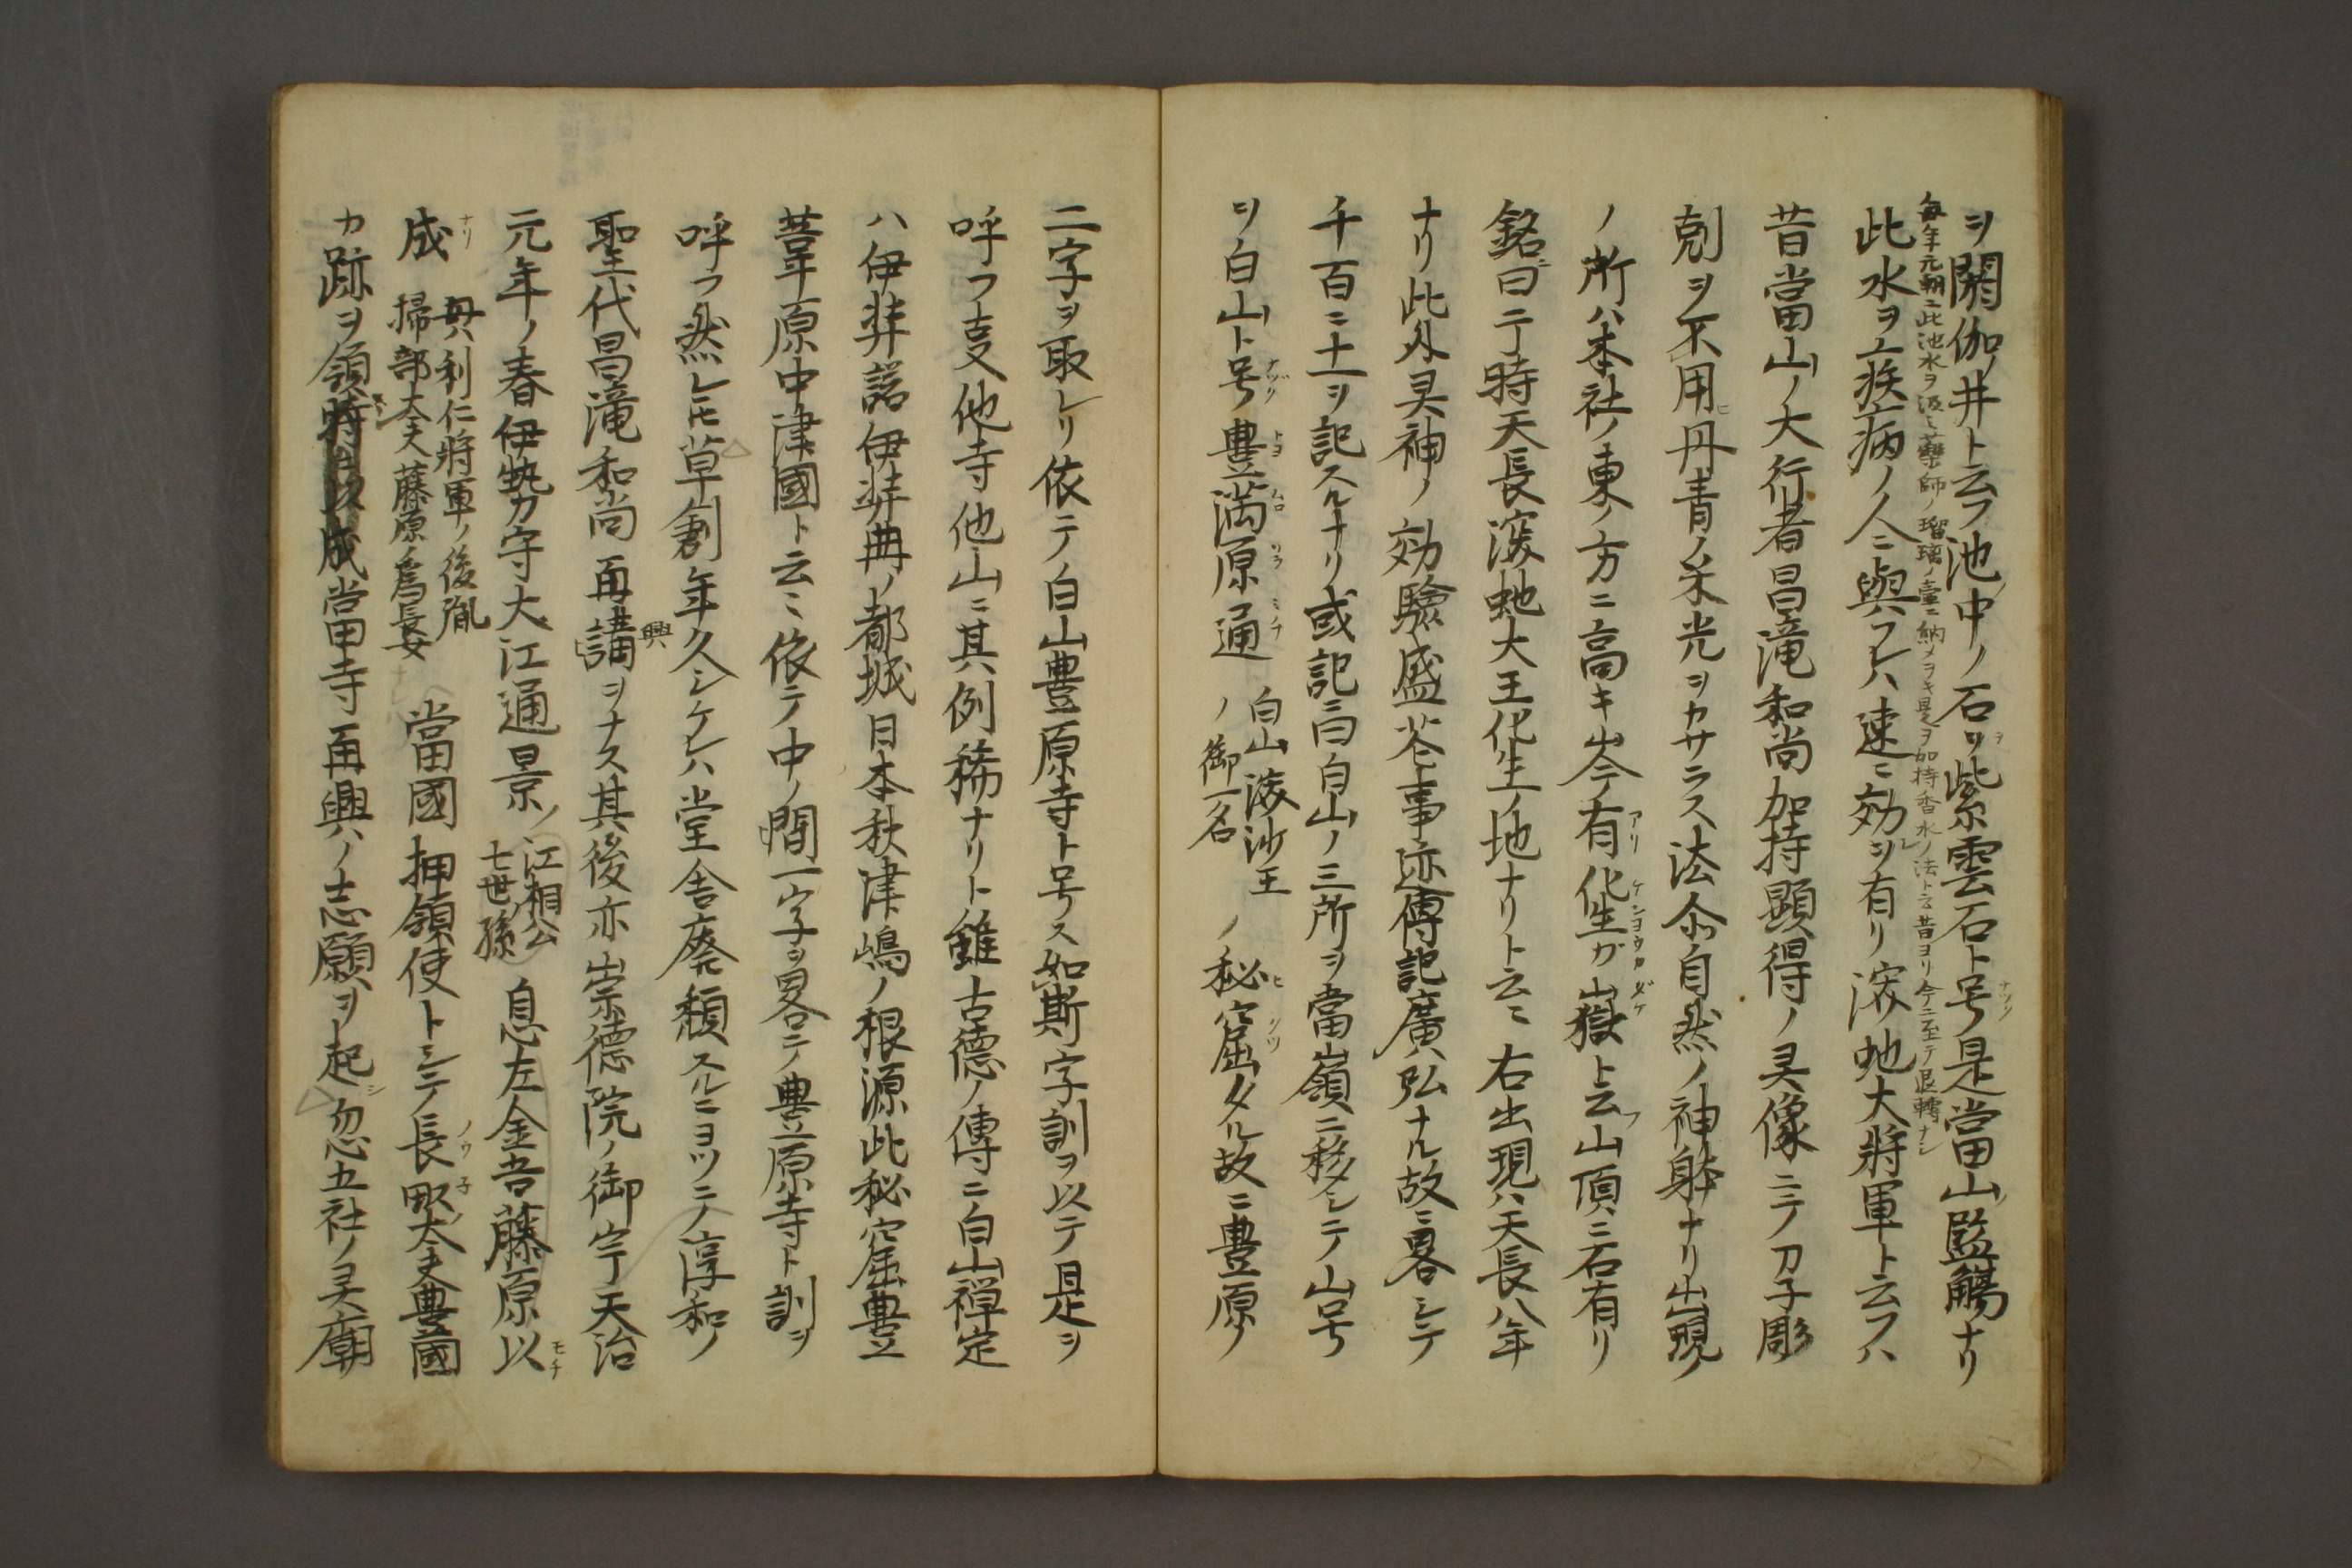 ヲ閼伽ノ井ト云フ池中ノ石ヲ紫雲石ト号是當山ノ監觴ナリ
毎年元朝ニ此池水ヲ汲ミ藥師ノ瑠璃ノ壷ニ納メヲキ是ヲ加持香水ノ法ト云昔ヨリ今ニ至テ退轉ナシ
此水ヲ疾病ノ人ニ與フレハ速ニ効シ有リ深虵大將軍ト云フハ
昔當山ノ大行者昌滝和尚加持顕得ノ㚑像ニテ刀子彫
剋ヲ不用丹青ノ米光ヲカサラス法尒自然ノ神躰ナリ出現ノ
ノ所ハ本社ノ東ノ方ニ高キ岑有化生ガ嶽ト云山頂ニ石有リ
銘曰于時天長深虵大王化生ノ地ナリト云々右出現ハ天長八年
ナリ此外㚑神ノ効驗盛荅事迹傳記廣弘ナル故ニ畧シテ
千百二十一ヲ記スルナリ或記ニ曰白山ノ三所ヲ當嶺ニ移シテ山号
ヲ白山ト号豊満原通 白山深沙王ノ御一名 ノ秘窟タル故ニ豊原ノ
二字ヲ取レリ依テ白山豊原寺ト号ス如斯字訓ヲ以テ是ヲ
呼フ支他寺他山ニ其例稀ナリト雖古德ノ傳ニ白山禅定
ハ伊弉諾伊弉冊ノ都城日本秋津嶋ノ根源此秘窟豊
葦原中津國ト云々依テ中ノ間一字ヲ畧テ豊原寺ト訓ヲ
呼フ然レ𪜈草創年久シケレハ堂舎廃頽スルニヨツテ淳和ノ
聖代昌滝和尚再講興ヲナス其後亦崇德院ノ御宇天治
元年ノ春伊勢守大江通景ノ 江相公七世ノ孫 息左金吾藤原以
成 母ハ利仁將軍ノ後胤掃部大夫藤原ノ為長女 當國押領使トシテ長畝大夫豊國
カ跡ヲ領 成當寺再興ノ志願ヲ起シ忽五社ノ㚑廟